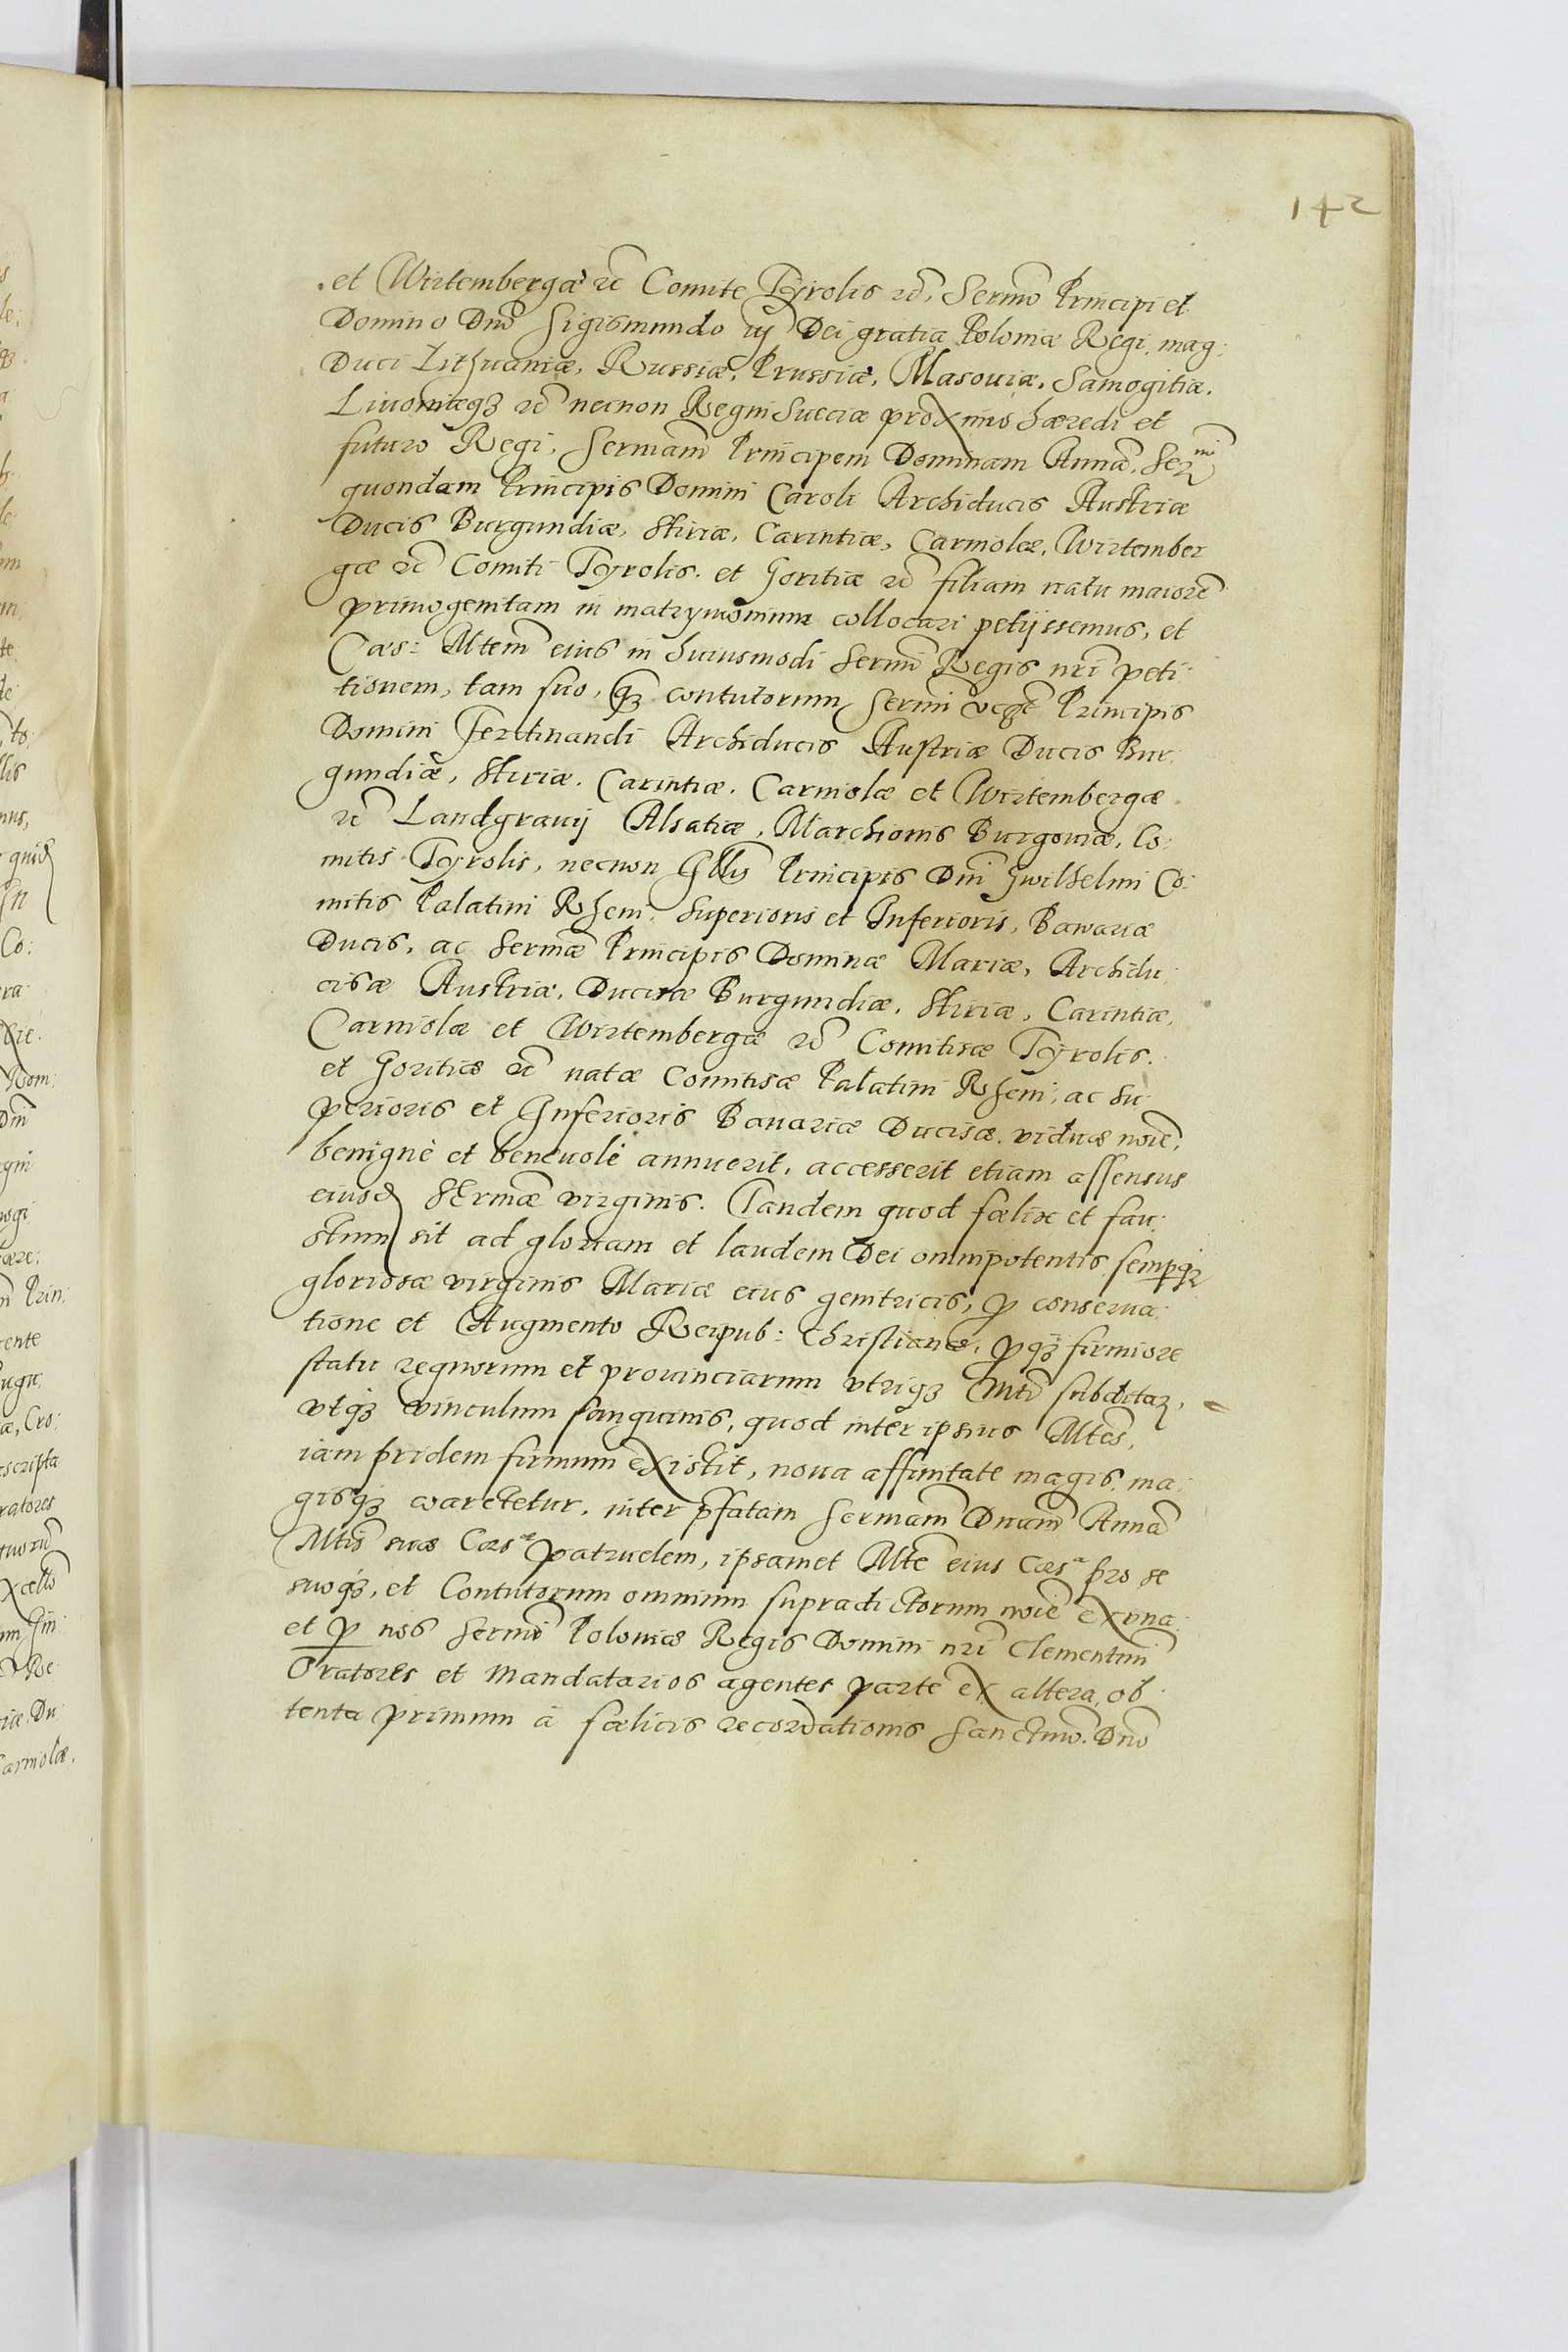 142
et Wirtembergæ etc̄ Comite Tyrolis etc̄, Sermo Principi et
Domino Dno Sigismundo iij Dei gratia Poloniæ Regi, mag:
Duci Lithuaniæ, Russiæ, Prussiæ, Masouiæ, Samogitiæ,
Liuoniæqȝ etc̄ necnon Regni Sueciæ proximo hæredi et
futuro Regi, Sermam Principem Dominam Annā, Ser mi
quondam Principis Domini Caroli Archiducis Austriæ
Ducis Burgundiæ, Stiriæ, Carintiæ, Carniolæ, Wirtember
gæ etc̄ Comiti Tyrolis. et Goritiæ etc̄ filiam natu maiorē
primogenitam in matrymonium collocari petijssemus, et
Cæs: Altem̄ eius in huiusmodi Sermi Regis nrī peti:
tionem, tam suo, qȝ contutorum Sermi Principis
Domini Ferdinandi Archiducis Austriæ Ducis Bur:
gundiæ, Stiriæ. Carintiæ. Carniolæ et Wirtembergæ
etc̄ Landgrauij Alsatiæ, Marchionis Burgouiæ, Co:
mitis Tyrolis, necnon Illmi Principis Dni Gwilhelmi Co:
mitis Palatini Rheni, Superioris et Inferioris, Bawariæ
Ducis, ac Sermæ Principis Dominæ Mariæ, Archidu:
cisæ Austriæ, Ducisæ Burgundiæ, Stiriæ, Carintiæ,
Carniolæ et Wirtembergæ etc̄ Comitisæ Tyrolis.
et Goritiæ etc̄ natæ Comitisæ Palatini Rheni, ac Su:
perioris et Inferioris Bauariæ Ducisæ. viduæ noīe,
benignè et beneuolè annuerit, accesserit etiam assensus
eiusd Sermæ virginis. Tandem quod fælix et fau:
stum sit ad gloriam et laudem Dei omnipotentis, sempqȝ
gloriosæ virginis Mariæ eius genitricis, p conserua:
tione et Augmento Reipub: Christianæ, pqȝ firmiore
statu regnorum et prouinciarum vtriqȝ Mti subditaꝝ,
vtqȝ vinculum sanguinis, quod inter ipsius Altes,
iam pridem firmum existit, noua affinitate magis, ma:
gisqȝ coarctetur, inter pfatam Sermam Dnam Annā
Altis suæ Cæsæ patruelem, ipsamet Alte eius Cæsa pro se
suoqȝ, et Contutorum omnium supradictorum noīe ex vna:
et p nos Sermi Poloniæ Regis Domini nrī Clementimi
Oratores et Mandatarios agentes parte ex altera, ob
tenta primum à fælicis recordationis Sanctmo. Dno